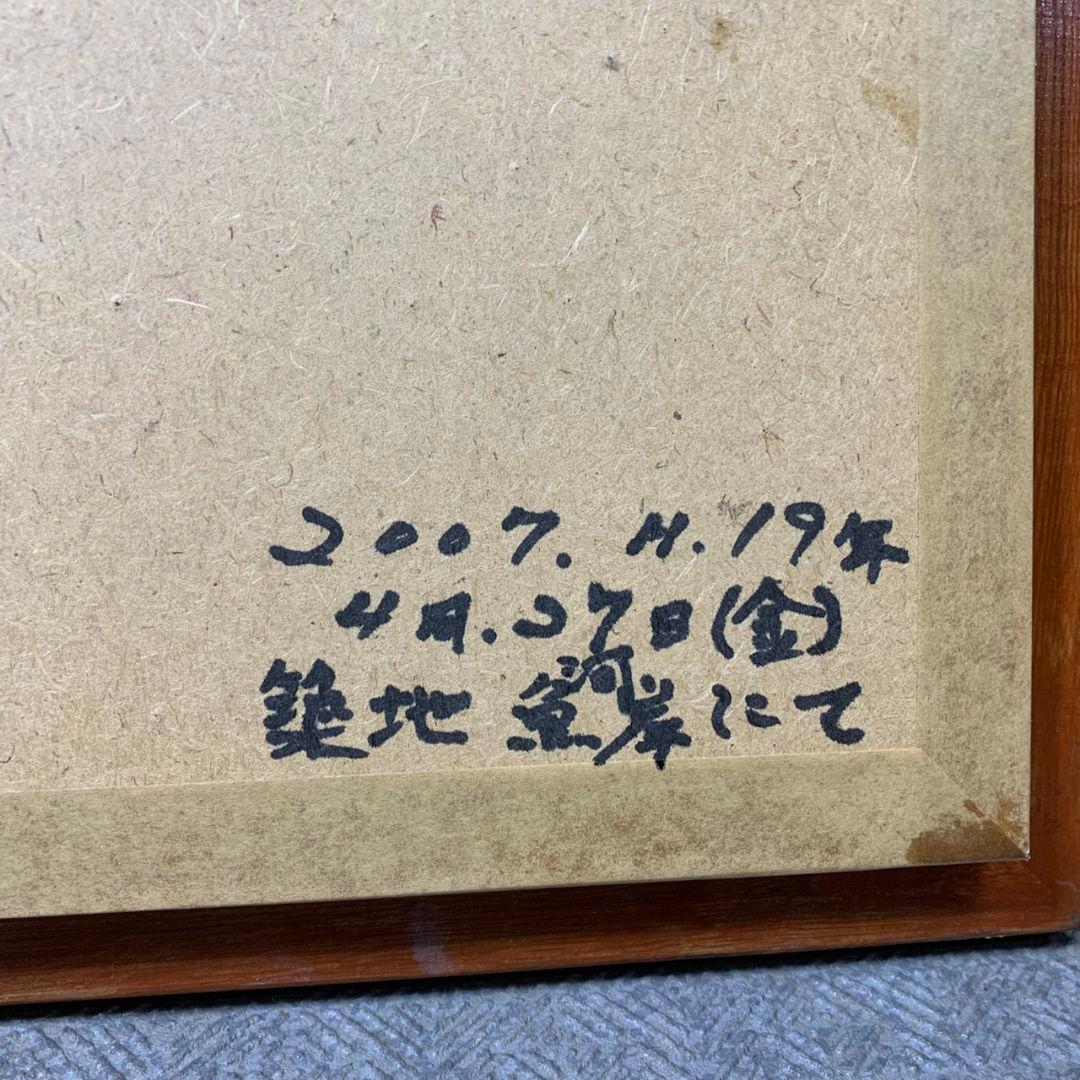 2007. H.19年
4月.27日(金)
築地 魚河岸にて